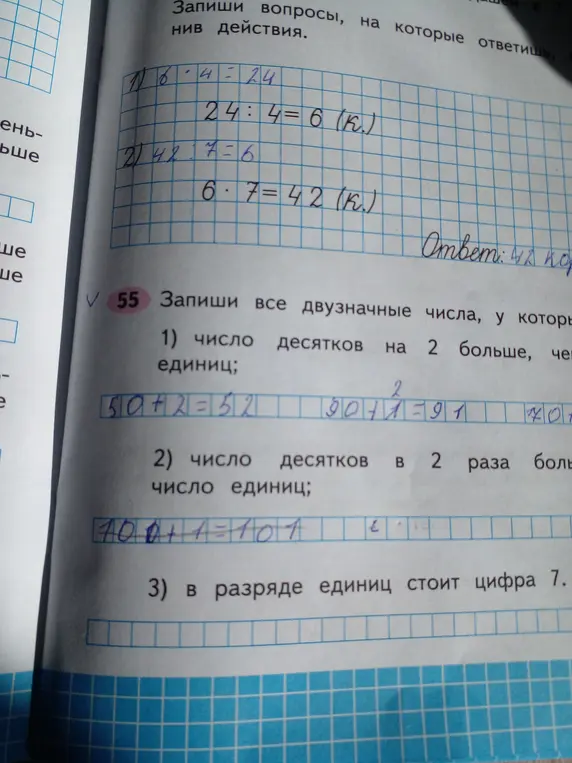 Запиши вопросы, на которые ответишь,
нив действия.
1) 6 · 4 = 24
24 : 4 = 6 (к.)
2) 42 : 7 = 6
6 · 7 = 42 (к.)
Ответ: 42 кор
ень-
ьше
ше
ше
е
55 Запиши все двузначные числа, у которы
1) число десятков на 2 больше, че
единиц;
50+2=52 90+1=91 70+
2
2) число десятков в 2 раза боль
число единиц;
100+1=101
3) в разряде единиц стоит цифра 7.